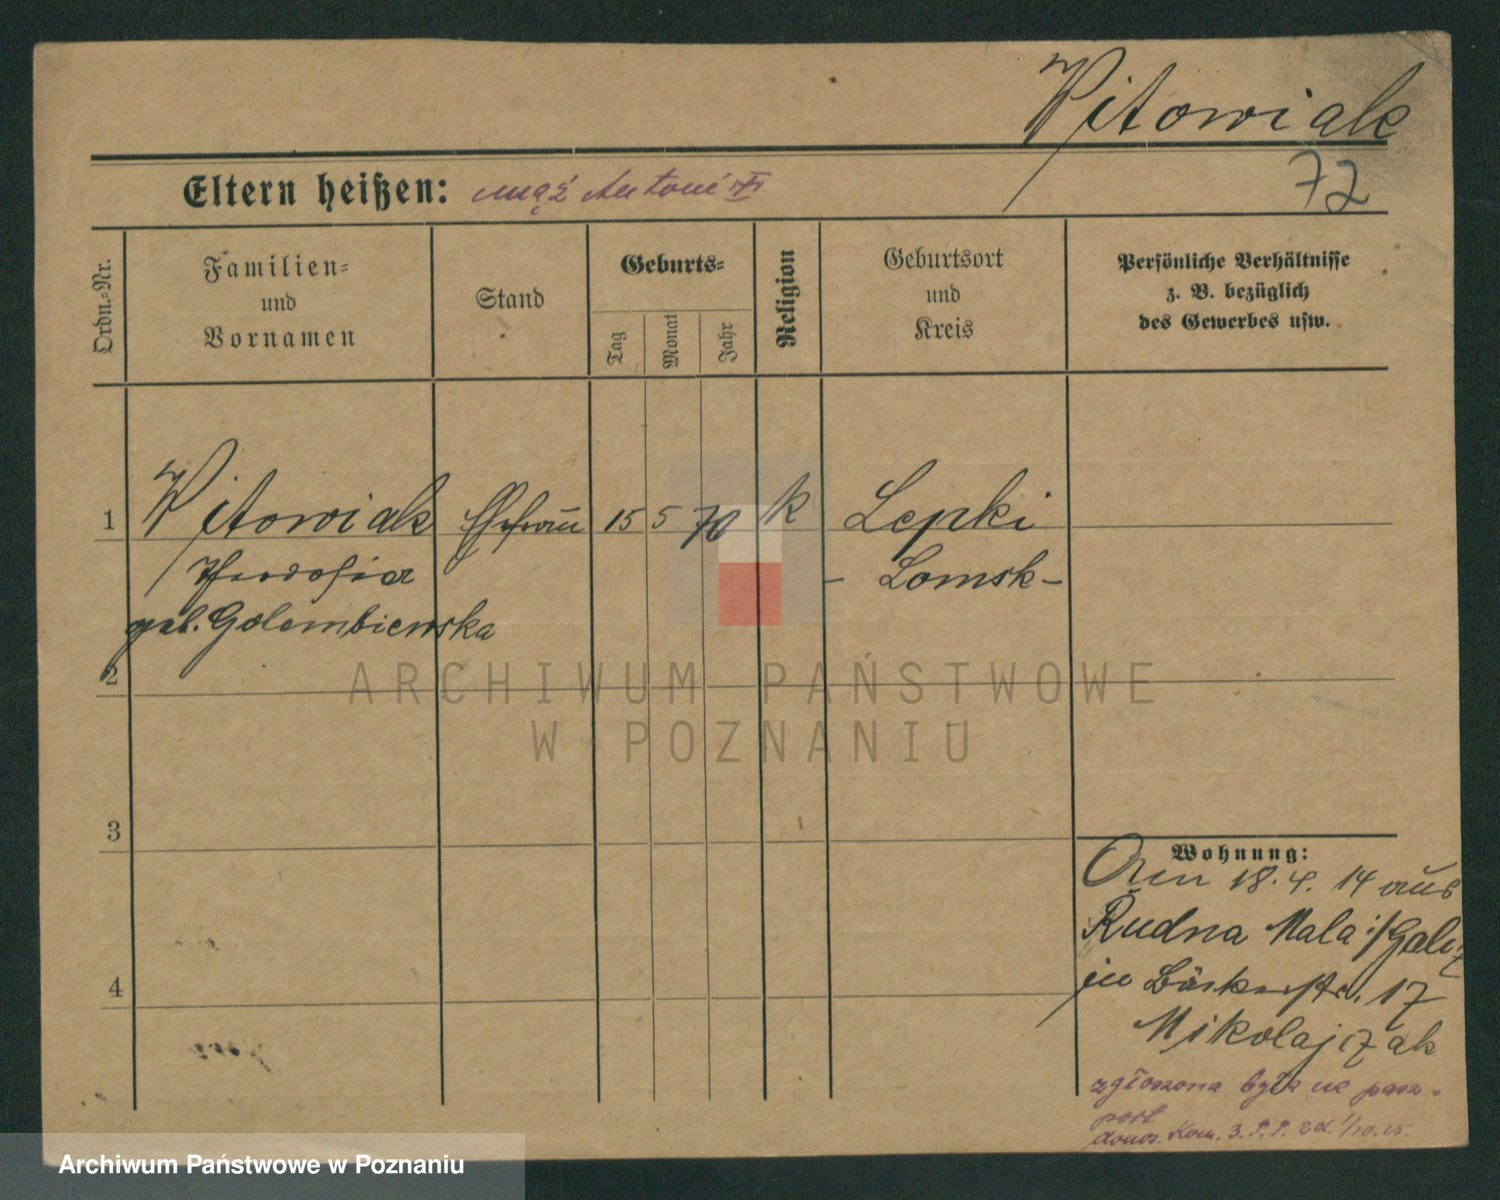 Witowiak
72
Eltern heißen: mąż Antoni
Ordn.=Nr.
Familien=
und
Vornamen
Stand
Geburts=
Tag
Monat
Jahr
Religion
Geburtsort
und
Kreis
Persönliche Verhältnisse
z. B. bezüglich
des Gewerbes usw.
1 Witowiak Ehefrau 15 5 70 k Lepki
Theodosia - Lomsk -
geb. Golembiewska
2
ARCHIWUM PAŃSTWOWE
W POZNANIU
3
Wohnung:
18. 4. 14 aus
Rudna Mala i/Galiz
in Bäckerstr. 17
4
Mikolajczak
zgłoszona była na pasz-
port
donos. Kom. 3. P. P. zd. 1/10.25.
Archiwum Państwowe w Poznaniu